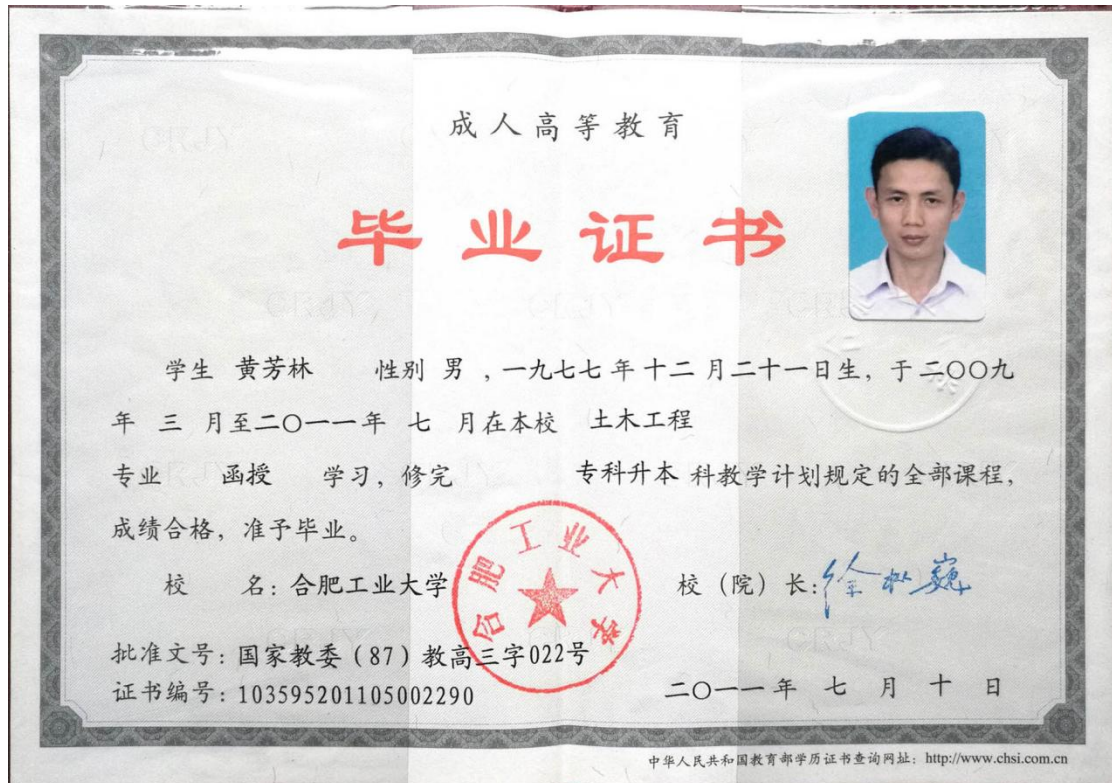 成人高等教育
毕业证书
学生 黄芳林 性别 男 ,一九七七年十二月二十一日生, 于二〇〇九
年 三 月至二〇一一年 七 月在本校 土木工程
专业 函授 学习, 修完 专科升本 科教学计划规定的全部课程,
成绩合格, 准予毕业。
校 名: 合肥工业大学
合肥工业大学
校 (院) 长: 徐枞巍
批准文号: 国家教委(87)教高三字022号
证书编号: 103595201105002290
二〇一一年 七 月 十 日
中华人民共和国教育部学历证书查询网址: http://www.chsi.com.cn